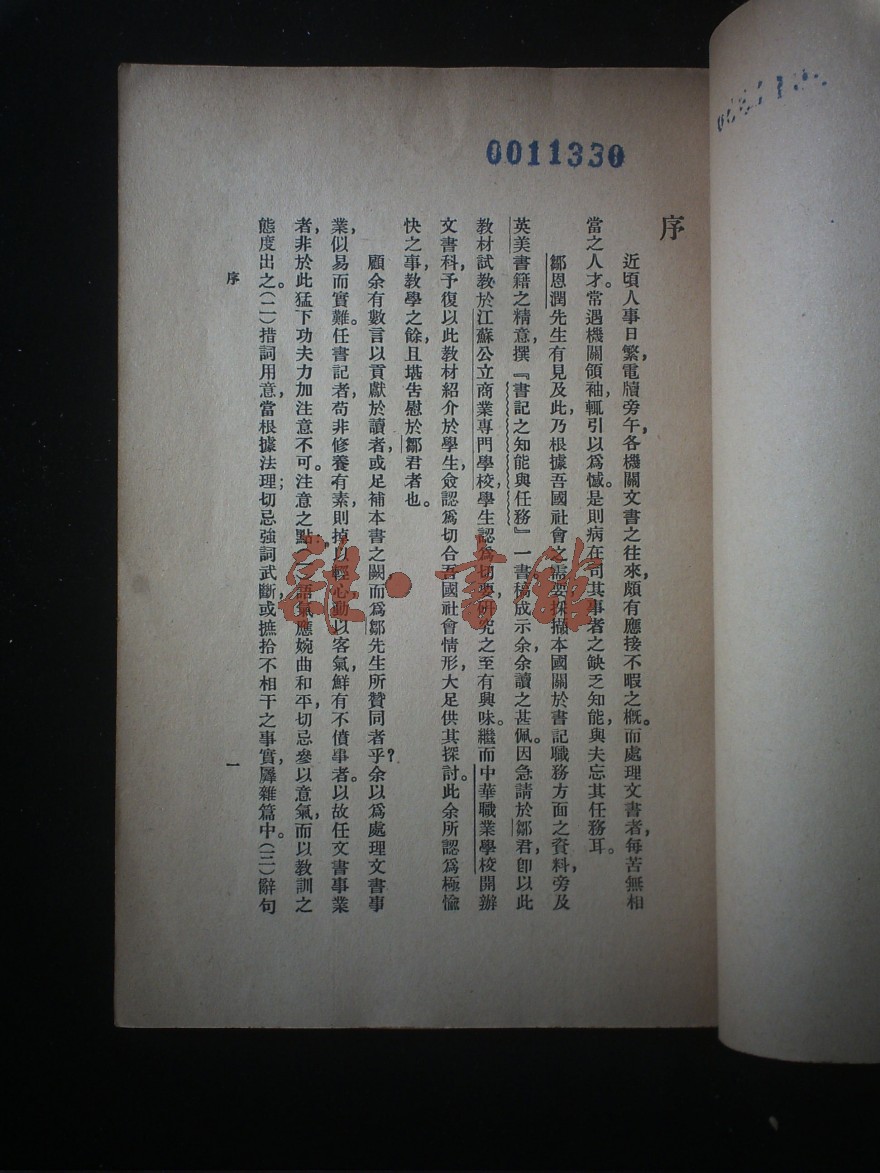 0011330
序
近頃人事日繁，電牘旁午，各機關文書之往來，頗有應接不暇之概。而處理文書者，每苦無相
當之人才。常遇機關領袖，輒引以爲憾。是則病在司其事者之缺乏知能，與夫忘其任務耳。
鄒恩潤先生有見及此，乃根據吾國社會之需要，採擷本國關於書記職務方面之資料，旁及
英美書籍之精意，撰『書記之知能與任務』一書。稿成示余，余讀之甚佩。因急請於鄒君，卽以此
教材試教於江蘇公立商業專門學校，學生認爲切要，研究之至有興味。繼而中華職業學校開辦
文書科，予復以此教材紹介於學生，僉認爲切合吾國社會情形，大足供其探討。此余所認爲極愉
快之事，教學之餘，且堪告慰於鄒君者也。
顧余有數言以貢獻於讀者，或足補本書之闕，而爲鄒先生所贊同者乎？余以爲處理文書事
業，似易而實難。任書記者，苟非修養有素，則掉以輕心，動以客氣，鮮有不僨事者。以故任文書事業
者，非於此猛下功夫力加注意不可。注意之點：（一）語氣應婉曲和平，切忌參以意氣，而以教訓之
態度出之。（二）措詞用意，當根據法理；切忌強詞武斷，或摭拾不相干之事實，羼雜篇中。（三）辭句
序
一
雜·書館